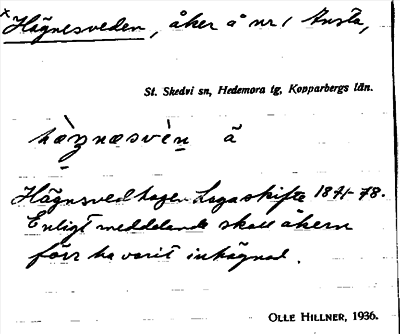 × Hägnesveden, åker å nr 1 Ansta,
St. Skedvi sn, Hedemora tg, Kopparbergs län.
hæ̀gnæsvèn å
Hägnsvedhagen Lagaskifte 1871-78.
Enligt meddelande skall åkern
förr ha varit inhägnad.
OLLE HILLNER, 1936.